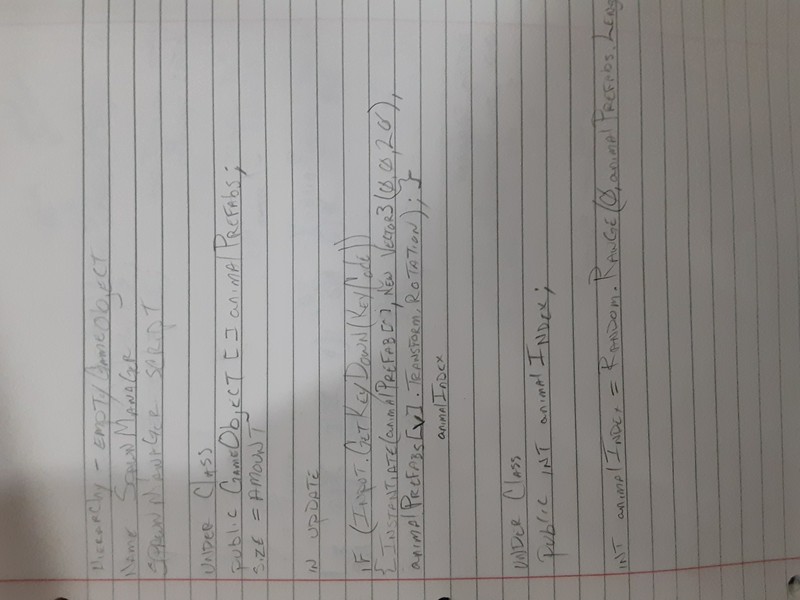 HIERARCHY - EMPTY GAMEOBJECT
NAME SPAWNMANAGER
SPAWNMANAGER SCRIPT
UNDER CLASS
PUBLIC GAMEOBJECT [] animalPREFABS;
SIZE = AMOUNT
IN UPDATE
IF (INPUT.GETKEYDOWN(KEYCODE))
{ INSTANTIATE(animalPREFAB[], NEW VECTOR3(0,0,20),
animalPREFABS[V].TRANSFORM, ROTATION); }
animalINDEX
UNDER CLASS
PUBLIC INT animal INDEX;
INT animalINDEX = RANDOM.RANGE(0, animalPREFABS.LENG